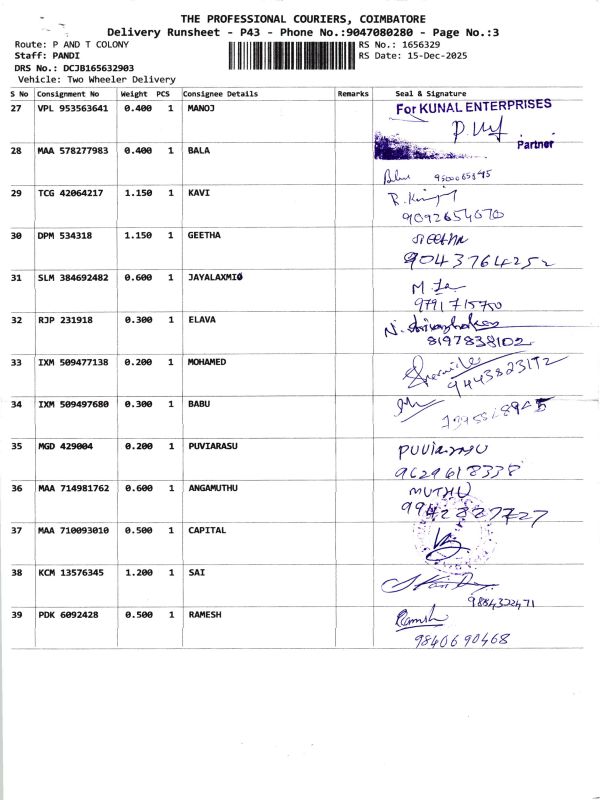 THE PROFESSIONAL COURIERS, COIMBATORE
Delivery Runsheet - P43 - Phone No.:9047080280 - Page No.:3
Route: P AND T COLONY RS No.: 1656329
Staff: PANDI RS Date: 15-Dec-2025
DRS No.: DCJB165632903
Vehicle: Two Wheeler Delivery
S No Consignment No Weight PCS Consignee Details Remarks Seal & Signature
27 VPL 953563641 0.400 1 MANOJ For KUNAL ENTERPRISES
Partner
28 MAA 578277983 0.400 1 BALA
29 TCG 42064217 1.150 1 KAVI
9092654070
30 DPM 534318 1.150 1 GEETHA GEETHA
9043764252
31 SLM 384692482 0.600 1 JAYALAXMI
9791715750
32 RJP 231918 0.300 1 ELAVA
8197838102
33 IXM 509477138 0.200 1 MOHAMED
9443823172
34 IXM 509497680 0.300 1 BABU
35 MGD 429004 0.200 1 PUVIARASU PUVIARASU
9629618338
36 MAA 714981762 0.600 1 ANGAMUTHU MUTHU
9942887727
37 MAA 710093010 0.500 1 CAPITAL
38 KCM 13576345 1.200 1 SAI
9884322471
39 PDK 6092428 0.500 1 RAMESH Ramesh
9840690468